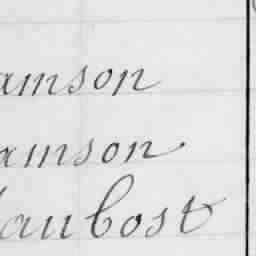 amson
amson
laubost